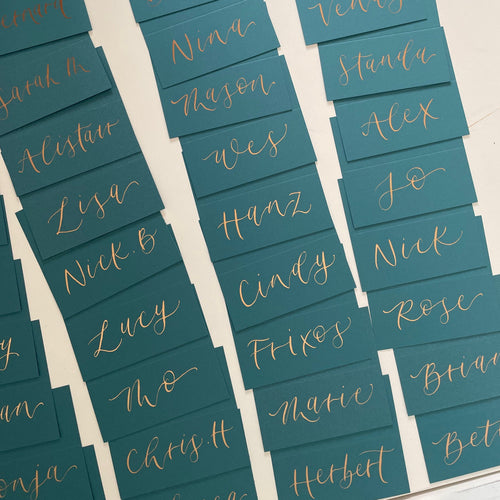 onja
Sarah M
Alistair
Lisa
Nick.B
Lucy
Mo
Chris.H
Nina
Mason
Wes
Hanz
Cindy
Frixos
Marie
Herbert
Venus
Standa
Alex
Jo
Nick
Rose
Brian
Bett